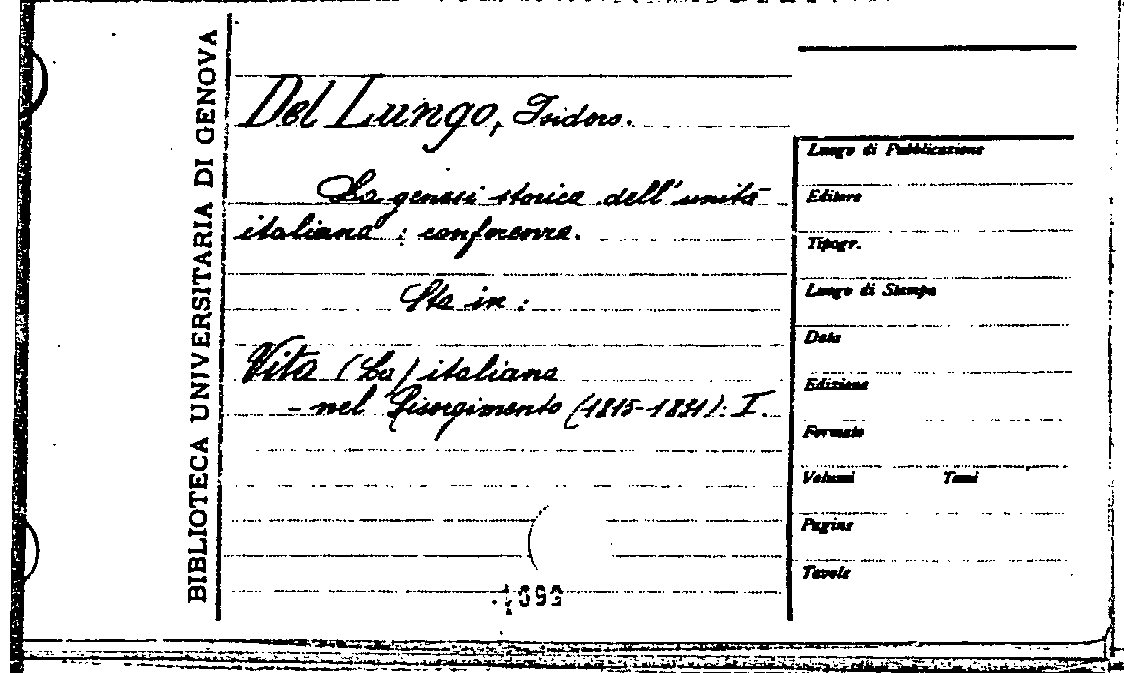 BIBLIOTECA UNIVERSITARIA DI GENOVA
Del Lungo, Isidoro.
La genesi storica dell'unità
italiana : conferenza.
Sta in :
Vita (La) italiana
- nel Risorgimento (1815-1831): I.
Luogo di Pubblicazione
Editore
Tipogr.
Luogo di Stampa
Data
Edizione
Formato
Volumi Tomi
Pagine
Tavole